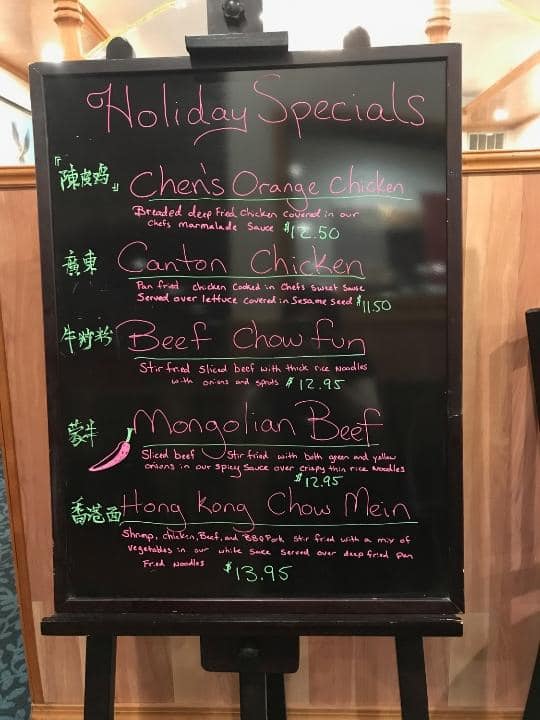 Holiday Specials
『陳皮鸡』 Chen's Orange Chicken
Breaded deep Fried Chicken Covered in our
Chefs marmalade Sauce $12.50
廣東 Canton Chicken
Pan fried chicken Cooked in Chefs Sweet Sauce
Served over lettuce covered in Sesame seed $11.50
牛炒粉 Beef Chow fun
Stir fried Sliced beef with thick rice Noodles
with onions and sprots $12.95
蒙牛 Mongolian Beef
Sliced beef Stir fried with both green and yellow
onions in our Spicy Sauce over Crispy thin rice Noodles
$12.95
香港面 Hong Kong Chow Mein
Shrimp, chicken, Beef, and BBQ Pork stir fried with a mix of
vegetables in our white Sauce Served over deep fried pan
Fried Noodles $13.95